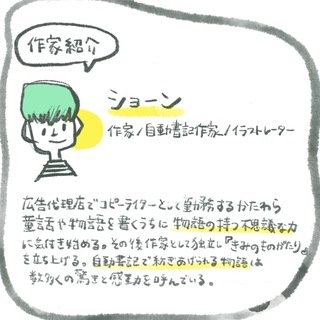 作家紹介
ショーン
作家/自動書記作家/イラストレーター
広告代理店でコピーライターとして勤務するかたわら
童話や物語を書くうちに物語の持つ不思議な力
に気付き始める。その後作家として独立し『きみのものがたり』
を立ち上げる。自動書記で紡ぎあげられる物語は
数多くの驚きと感動を呼んでいる。